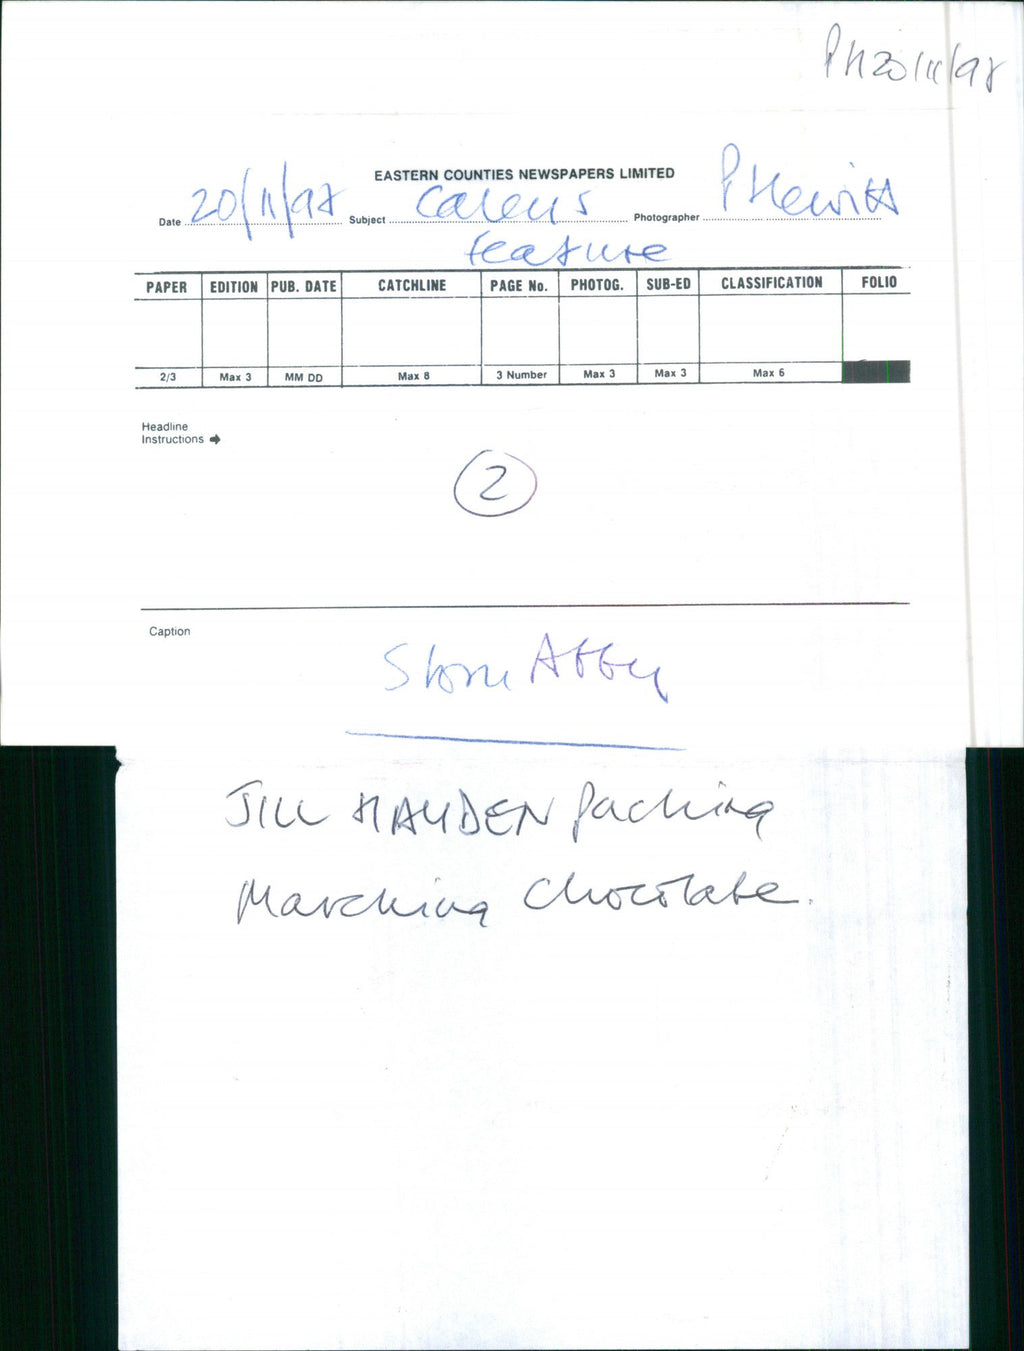 PH 20/11/97
EASTERN COUNTIES NEWSPAPERS LIMITED
Date 20/11/97 Subject Caleys Photographer P Hewitt
feature
PAPER EDITION PUB. DATE CATCHLINE PAGE No. PHOTOG. SUB-ED CLASSIFICATION FOLIO
2/3 Max 3 MM DD Max 8 3 Number Max 3 Max 3 Max 6
Headline
Instructions
2
Caption
JILL HAYDEN packing
Marching Chocolate.